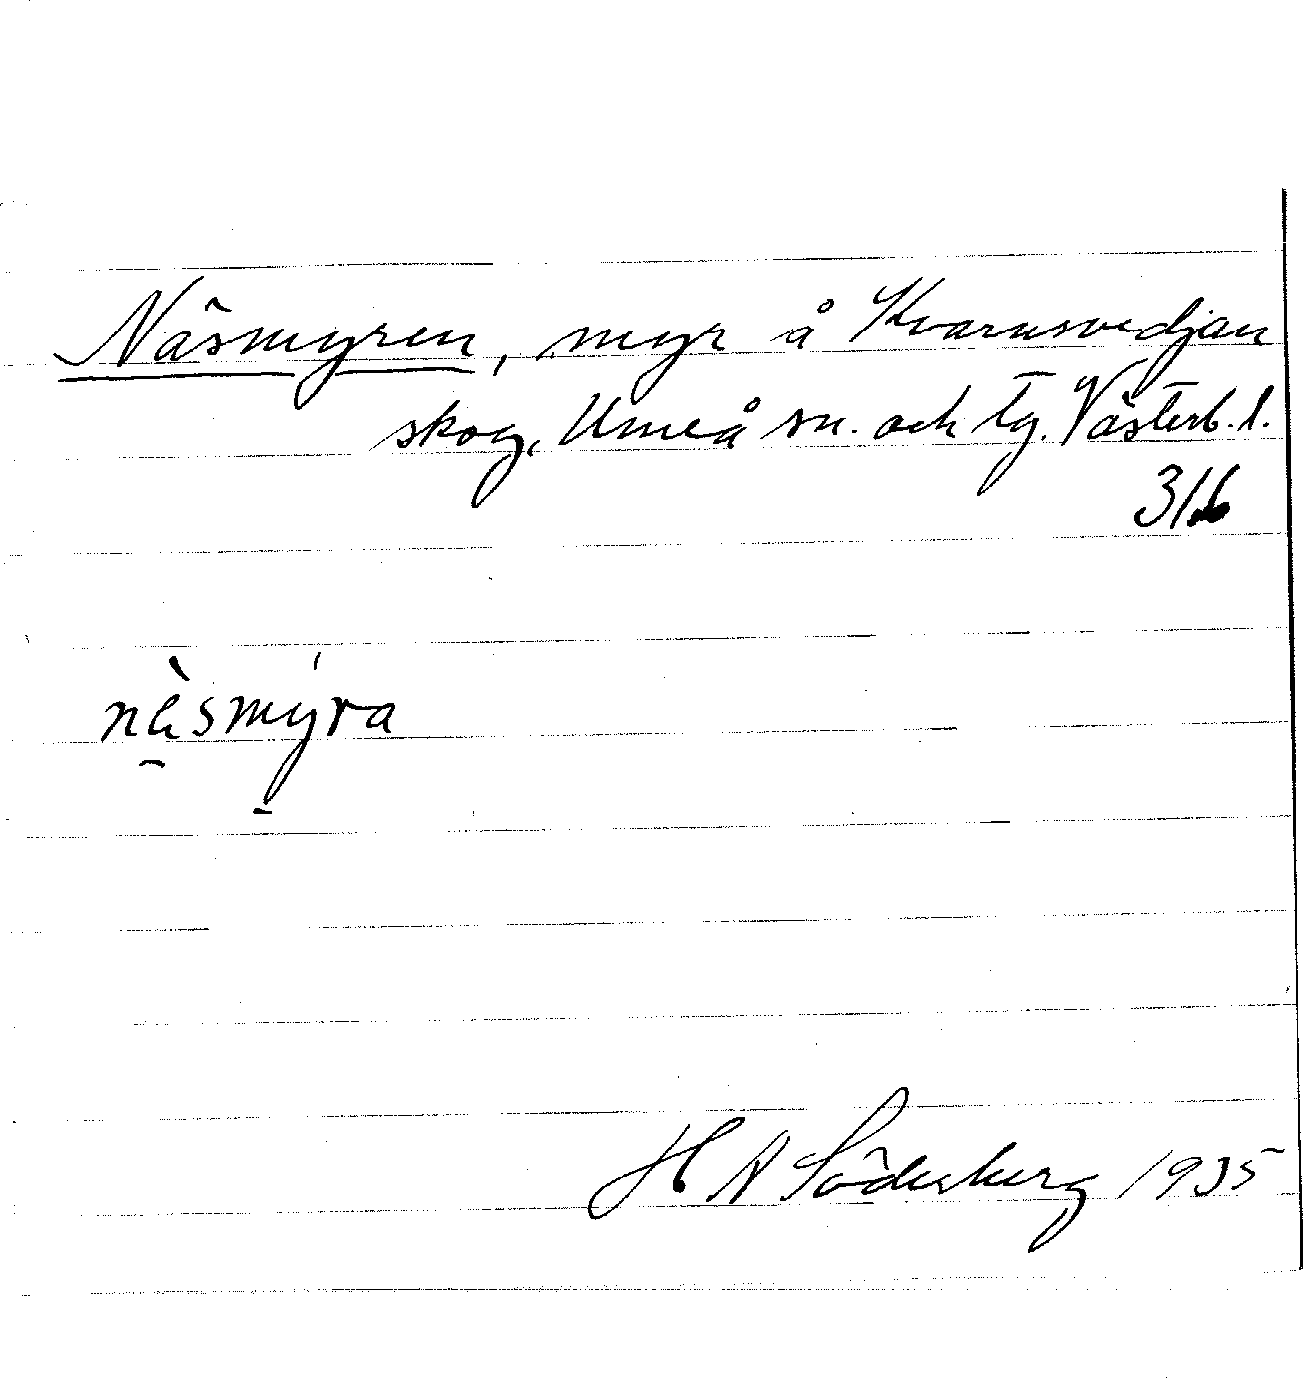 Näsmyren, myr å Kvarnsvedjan
skog, Umeå sn. och tg. Västerb. l.
316
näsmýra
H A Söderberg 1935